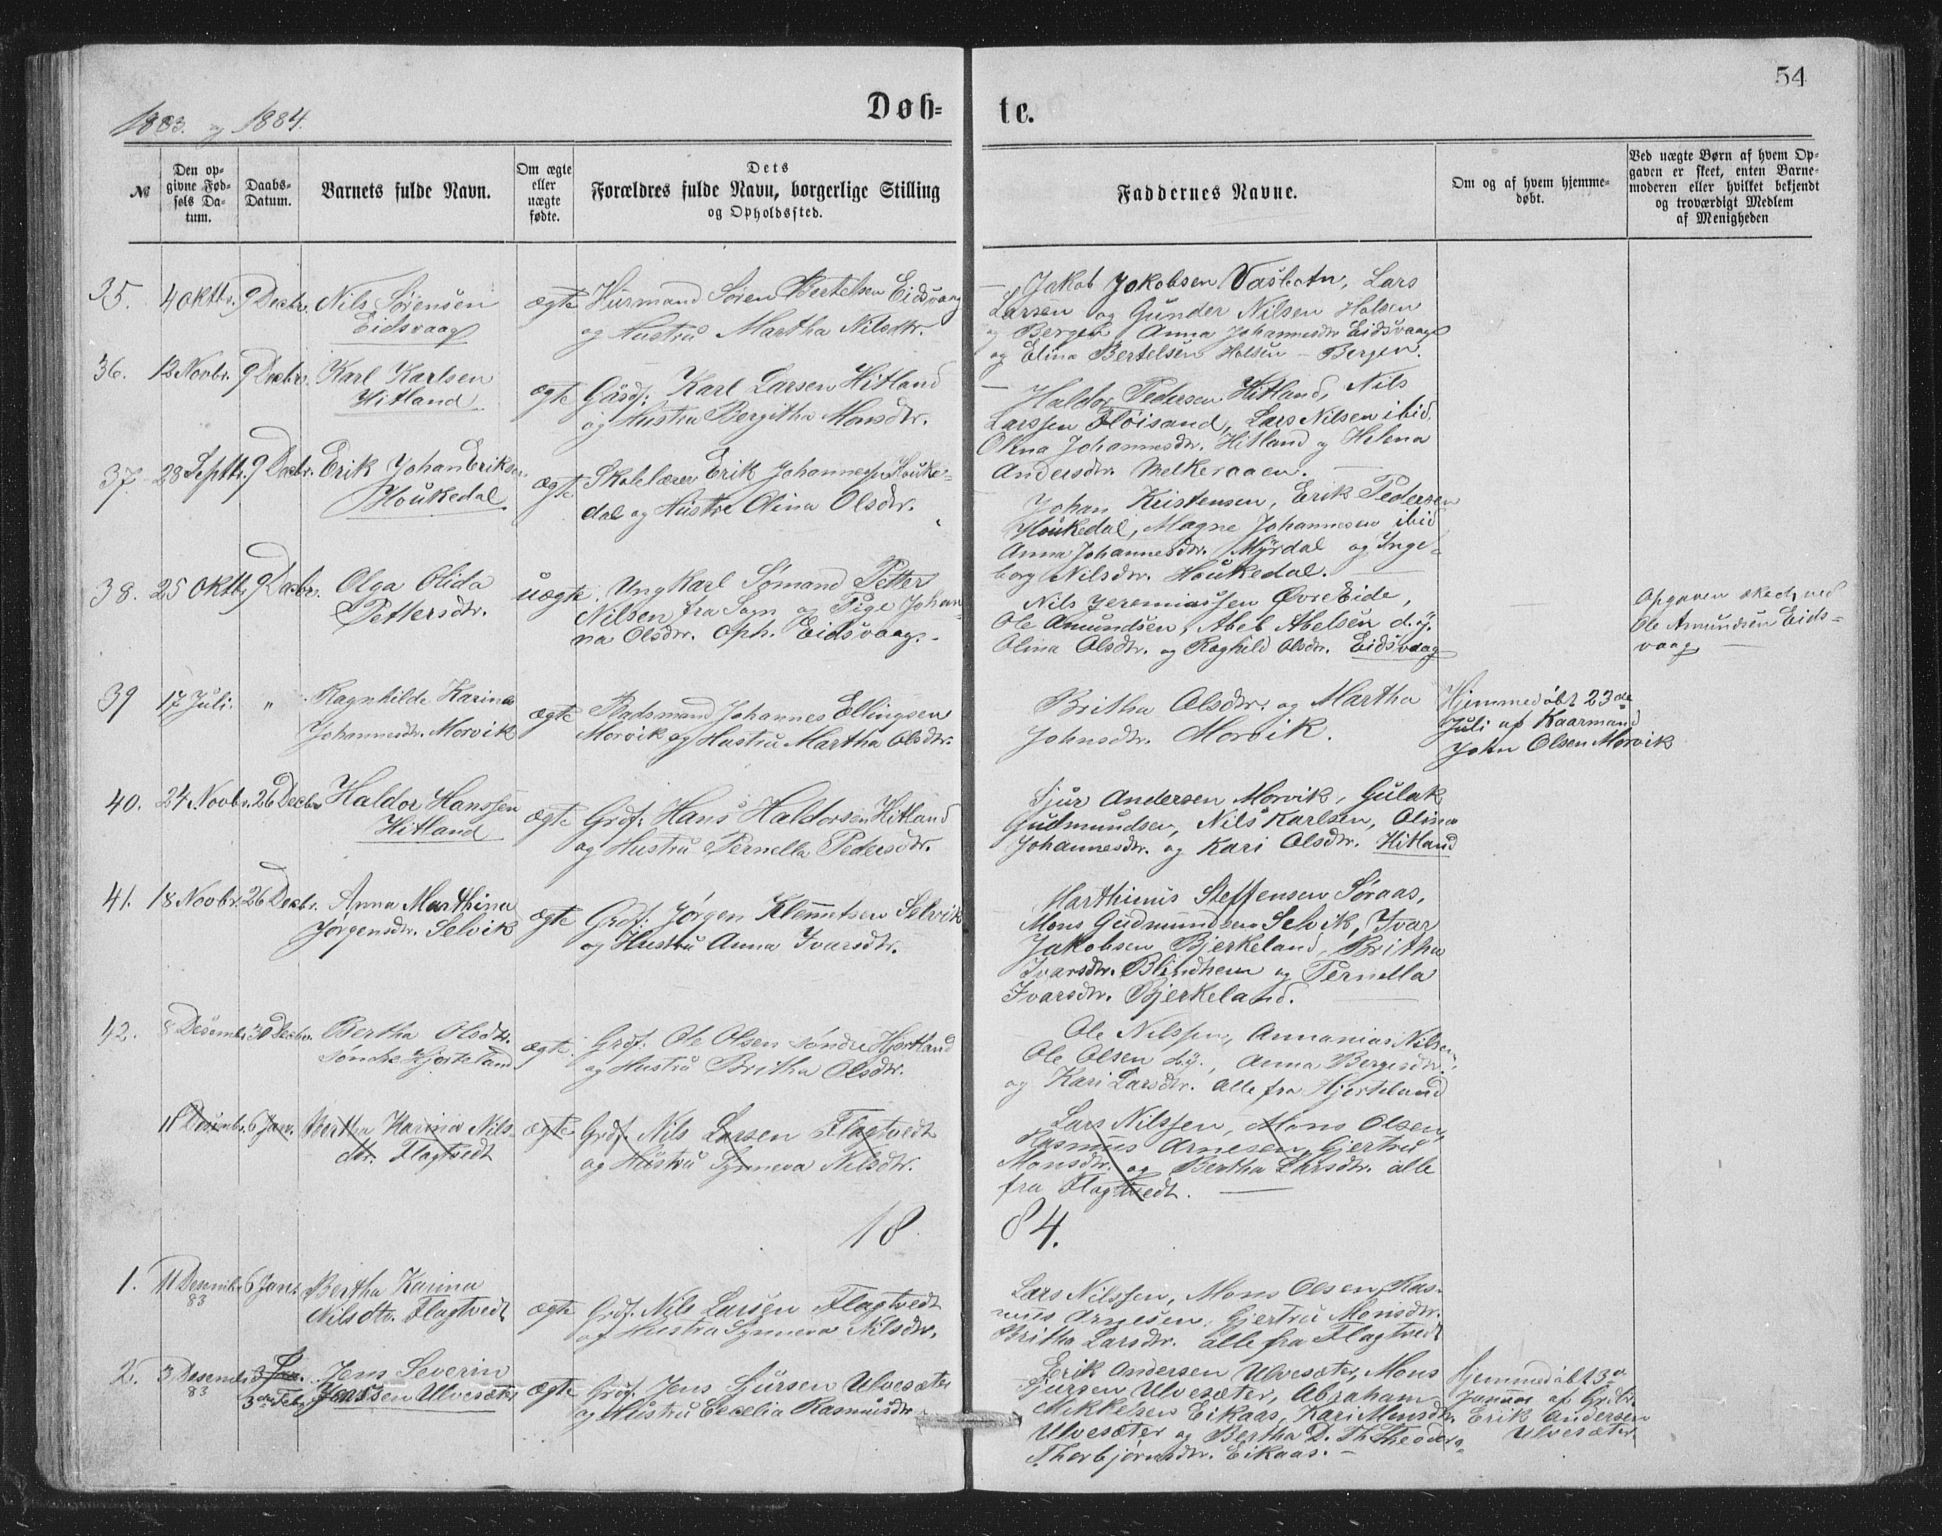 54
1883. og 1884.
Døb-
te.
№
Den op-
givne Fød-
sels Da-
tum.
Daabs-
Datum.
Barnets fulde Navn.
Om ægte
eller
uægte
fødte.
Dets
Forældres fulde Navn, borgerlige Stilling
og Opholdssted.
Faddernes Navne.
Om og af hvem hjemme-
døbt.
Ved uægte Børn af hvem Op-
gaven er skeet, enten Barne-
moderen eller hvilket bekjendt
og troværdigt Medlem
af Menigheden
35. 4 Oktbr. 9 Decbr. Nils Sørensen
Eidsvaag
ægte Husmand Søren Bertelsen Eidsvaag
og Hustru Martha Nilsdtr.
Jakob Jakobsen Vasbotn, Lars
Larsen og Gunder Nilsen Holsen
og Bergen, Anna Johannesdtr. Eidsvaag
og Elina Bertelsen Holsen - Bergen.
36. 12 Novbr. 9 Decbr. Karl Karlsen
Hitland
ægte Gaardf: Karl Larsen Hitland
og Hustru Bergitha Monsdtr.
Haldor Pedersen Hitland, Nils
Larssen Fløisand, Lars Nilsen ibid.
Olina Johannesdtr. Hitland og Helena
Andersdtr. Melkeraaen.
37. 28 Septbr. 9 Decbr. Erik Johan Eriksen
Houkedal
ægte Skolelærer Erik Johannessen Houke-
dal og Hustru Olina Olsdtr.
Johan Kristensen, Erik Pedersen
Houkedal, Magne Johannesen ibid
Anna Johannesdtr. Myrdal og Inge-
borg Nilsdtr. Houkedal.
38. 25 Oktb. 9 Decbr. Olga Olida
Pettersdtr.
uægte. Ungkarl Sømand Petter
Nilsen fra Sogn og Pige Johan-
na Olsdtr. Oph. Eidsvaag.
Nils Jeremiassen Øvre Eide,
Ole Amundsen, Abel Abelsen d.y.
Olina Olsdtr. og Ragnhild Olsdtr. Eidsvaag
Opgaven skedt ved
Ole Amundsen Eids-
vaag
39 17 Juli. " Ragnhilde Karina
Johannesdtr. Morvik
ægte Baadsmand Johannes Ellingsen
Morvik og Hustru Martha Olsdtr.
Britha Olsdtr. og Martha
Johnsdtr. Morvik.
Hjemmedøbt 23de
Juli af Kaarmand
John Olsen Morvik
40. 24 Novbr. 26 Decbr Haldor Hanssen
Hitland
ægte Grdf: Hans Haldorsen Hitland
og Hustru Pernella Pedersdtr.
Sjur Andersen Morvik, Gulak
Gudmundsen, Nils Karlsen, Olina
Johannesdtr. og Kari Olsdtr. Hitland
41. 18 Novbr. 26 Decbr. Anna Marthina
Jørgensdtr. Selvik
ægte Grdf: Jørgen Klemetsen Selvik
og Hustru Anna Ivarsdtr.
Marthinus Steffensen Søraas,
Mons Gudmundsen Selvik, Ivar
Jakobsen Bjerkeland, Britha
Ivarsdtr. Blindhem og Pernella
Ivarsdtr. Bjerkeland.
42. 8 Desembr 30 Decbr. Bertha Olsdtr.
Søndre Hjorteland
ægte. Grdf: Ole Olsen Søndre Hjortland
og Hustru Britha Olsdtr.
Ole Nilssen, Annanias Nilsen
Ole Olsen d.y., Anna Bergesdtr.
og Kari Larsdtr. alle fra Hjorteland
11 Desembr. 6 Janr. Bertha Karina Nils-
dtr. Flagtvedt
ægte Grdf. Nils Larsen Flagtvedt
og Hustru Synneva Nilsdtr.
Lars Nilssen, Mons Olsen,
Rasmus Arnesen, Gjertru
Monsdtr. og Bertha Larsdtr. alle
fra Flagtvedt.
18 84.
1. 11 Desembr 83 6 Janr. Bertha Karina
Nilsdtr. Flagtvedt
ægte Grdf. Nils Larsen Flagtvedt
og Hustru Synneva Nilsdtr.
Lars Nilssen, Mons Olsen, Ras-
mus Arnesen, Gjertru Monsdtr.
Britha Larsdtr. alle fra Flagtvedt
2. 3 Desembr 83 3 Jan. 3die Feb. Jens Severin
Jenssen Ulvesæter
ægte Grdf. Jens Sjursen Ulvesæter
og Hustru Cecelia Rasmusdtr.
Erik Andersen Ulvesæter, Mons
Sjursen Ulvesæter, Abraham
Mikkelsen Eikaas, Kari Monsdtr.
Ulvesæter og Bertha D. Th. Theodora
Thorbjørnsdtr. Eikaas.
Hjemmedøbt 3de
Januar af Grdbr.
Erik Andersen
Ulvesæter